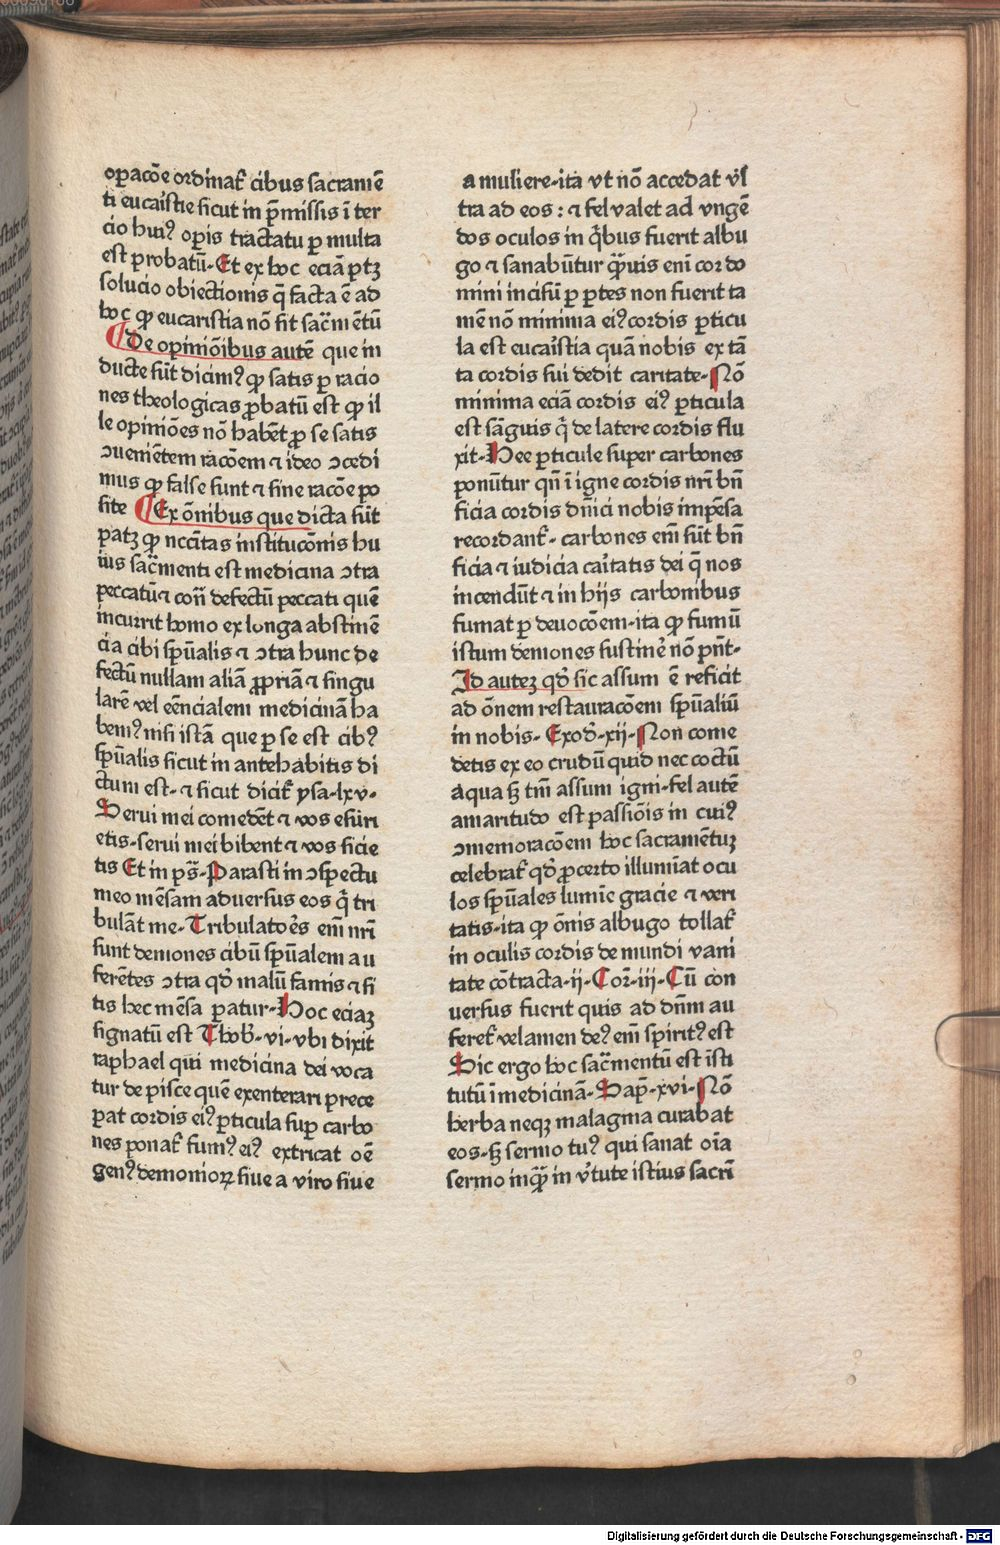 oꝑacōe ordinat᷑ cibus sacramē
ti eucaꝛ᷑istie sicut in p̄missis ī ter
cio huiꝰ oꝑis tractatu ꝑ multa
est probatū. Et ex hoc eciā ptꝫ
solucio obiectionis q̄ facta ē ad
hoc ꝙ eucaristia nō sit sac̄mētū
De opiniōibus autē que in
ducte sūt dicimꝰ ꝙ satis ꝑ racio
nes theologicas ꝓbatū est ꝙ il
le opiniōes nō habēt ꝓ se satis
ꝯueniētem racōem ⁊ ideo ꝯcedi
mus ꝙ false sunt ⁊ sine racōe po
site Ex ōnibus que dicta sūt
patꝫ ꝙ nccītas institucōnis hu
ius sac̄menti est medicina ꝯtra
peccatū ⁊ cōn̄ defectū peccati quē
incurrit homo ex longa abstinē
cia cibi sp̄ualis ⁊ ꝯtra hunc de
fectū nullam aliā ꝓpriā ⁊ singu
larē vel eēncialem medicinā ha
bemꝰ nisi istā que ꝑ se est cibꝰ
sp̄ualis sicut in antehabitis di
ctum est. ⁊ sicut dicit᷑ ysa. lxv.
Serui mei comedēt ⁊ vos esuri
etis. serui mei bibent ⁊ vos sicie
tis Et in pš. Parasti in ꝯspectu
meo mēsam aduersus eos q̄ tri
bulāt me. Tribulatoēs eni᷑ nr̄i
sunt demones cibū sp̄ualem au
ferētes ꝯtra qd᷑ malū famis ⁊ si
tis hec mēsa paratur. Hoc eciaꝫ
signatū est Thob̄. vi. vbi dixit
raphael qui medicina dei voca
tur de pisce quē exenterari prece
pat cordis eiꝰ ꝑticula suꝑ carbo
nes ponat᷑ fumꝰ eiꝰ extricat oē
genꝰ demonioꝝ siue a viro siue
a muliere. ita vt nō accedat vl᷑
tra ad eos: ⁊ fel valet ad vngē
dos oculos in q̄bus fuerit albu
go ⁊ sanabūtur q̄uis eni᷑ cor do
mini incisū ꝑ ꝑtes non fuerit ta
mē nō minima eiꝰ cordis ꝑticu
la est eucaꝛ᷑istia quā nobis ex tā
ta cordis sui dedit caritate. Nō
minima eciā cordis eiꝰ ꝑticula
est sāguis q̄ de latere cordis flu
xit. Hee ꝑticule super carbones
ponūtur qn̄ ī igne cordis nr̄i bn̄
ficia cordis dn̄ici nobis impēsa
recordant᷑. carbones eni᷑ sūt bn̄
ficia ⁊ iudicia caꝛ᷑itatis dei q̄ nos
incendūt ⁊ in hijs carbonibus
fumat ꝑ deuocōem. ita ꝙ fumū
istum demones sustinē nō pn̄t.
Id auteꝫ qd᷑ sic assum ē reficit
ad ōnem restauracōem sp̄ualiū
in nobis. Exod᷑. xij. Non come
detis ex eo crudū quid nec coctū
aqua sꝫ tm̄ assum igni. fel autē
amaritudo est passiōis in cuiꝰ
ꝯmemoracōem hoc sacramētuꝫ
celebrat᷑ qd᷑ ꝓcerto illumīat ocu
los sp̄uales lumīe gracie ⁊ veri
tatis. ita ꝙ ōnis albugo tollat᷑
in oculis cordis de mundi vani
tate cōtracta. ij. Cor᷑. iij. Cū con
uersus fuerit quis ad dn̄m au
feret᷑ velamen deꝰ eni᷑ spiritꝰ est
Sic ergo hoc sac̄mentū est īsti
tutū ī medicinā. Sap̄. xvi. Nō
herba neqꝫ malagma curabat
eos. sꝫ sermo tuꝰ qui sanat oīa
sermo inq̄ in v̄tute istius sacr̄i
Digitalisierung gefördert durch die Deutsche Forschungsgemeinschaft - DFG